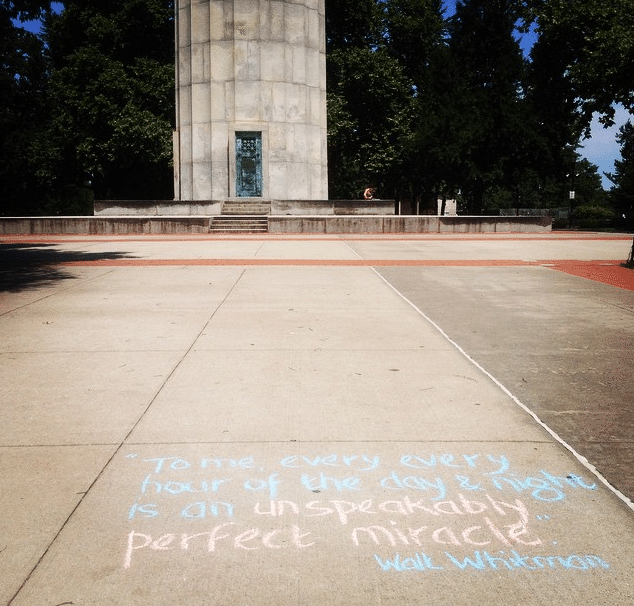 "To me, every every
hour of the day & night
is an unspeakably
perfect miracle".
Walt Whitman